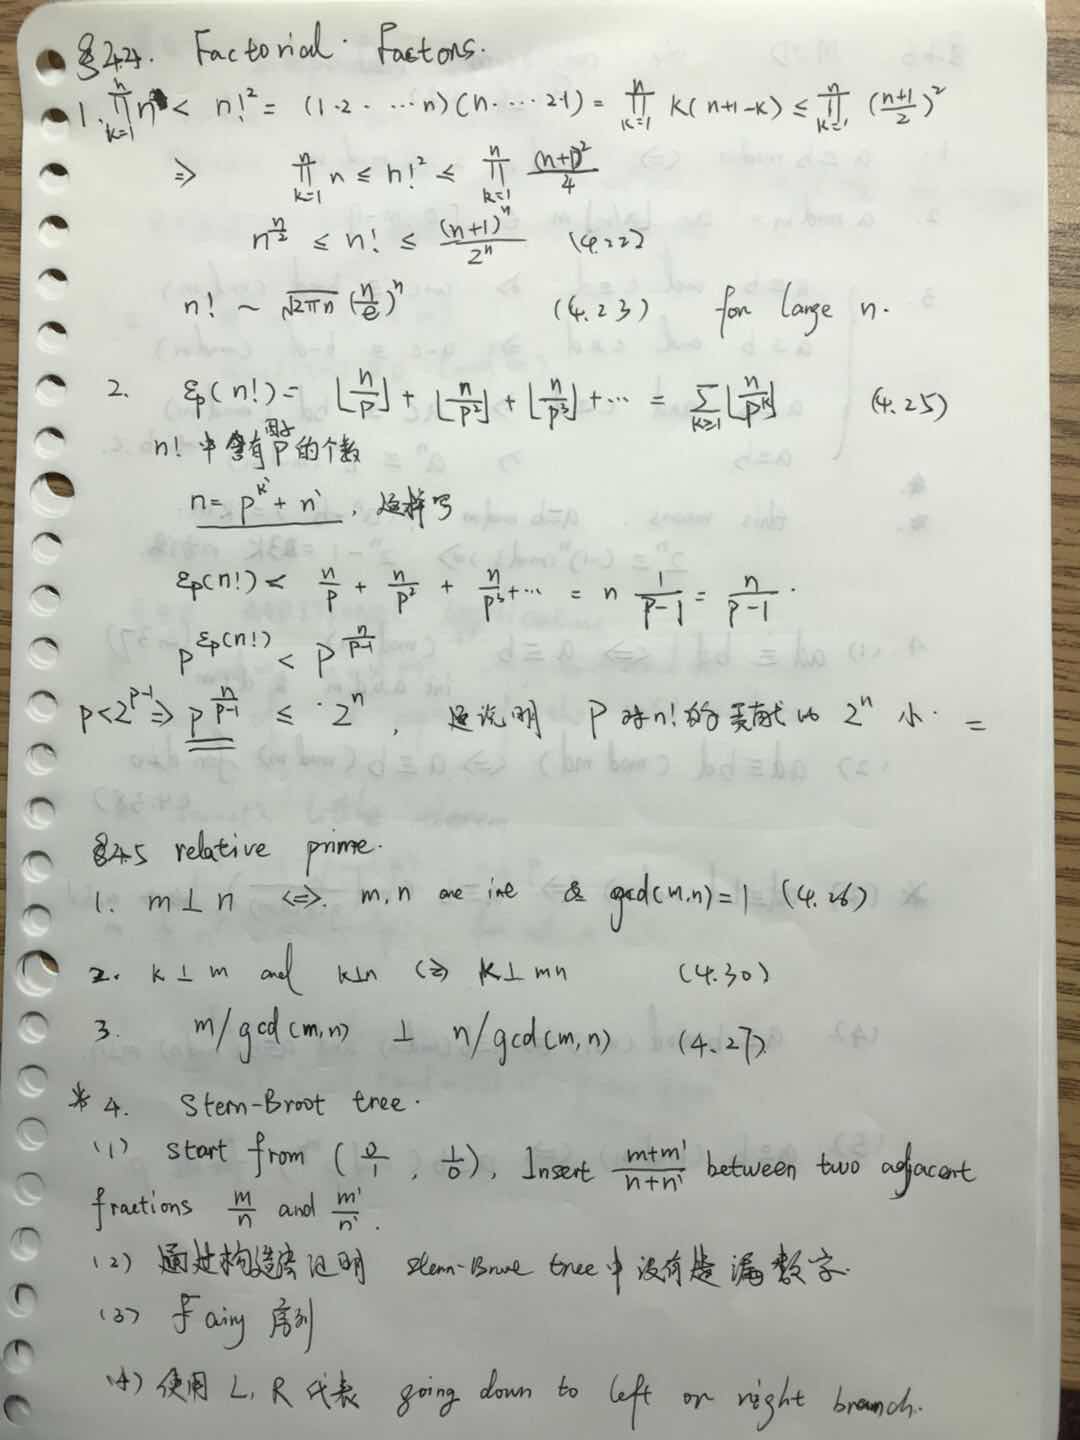 §4.4. Factorial Factors.
1. ∏_{k=1}^{n} n < n!² = (1·2·…n)(n·…·2·1) = ∏_{k=1}^{n} k(n+1-k) ≤ ∏_{k=1}^{n} ((n+1)/2)²
⇒ ∏_{k=1}^{n} n ≤ n!² ≤ ∏_{k=1}^{n} (n+1)²/4
n^{n/2} ≤ n! ≤ (n+1)^n/2^n (4.22)
n! ~ √(2πn) (n/e)^n (4.23) for large n.
2. ε_p(n!) = ⌊n/p⌋ + ⌊n/p²⌋ + ⌊n/p³⌋ + ⋯ = ∑_{k≥1} ⌊n/p^k⌋ (4.25)
n! 中含有因子 p 的个数
n = p^{k'} + n', 这样写
ε_p(n!) < n/p + n/p² + n/p³ + ⋯ = n 1/(p-1) = n/(p-1).
p^{ε_p(n!)} < p^{n/(p-1)}
p < 2^{p-1} ⇒ p^{n/(p-1)} ≤ 2^n, 这说明 p 对 n! 的贡献比 2^n 小. =
§4.5 relative prime.
1. m ⊥ n ⟺ m, n are int & gcd(m,n) = 1 (4.26)
2. k ⊥ m and k ⊥ n ⟺ k ⊥ mn (4.30)
3. m/gcd(m,n) ⊥ n/gcd(m,n) (4.27)
* 4. Stern-Broot tree.
(1) start from (0/1, 1/0), Insert (m+m')/(n+n') between two adjacent
fractions m/n and m'/n'.
(2) 通过构造法证明 Stern-Brone tree 中没有遗漏数字.
(3) Fairy 序列
(4) 使用 L, R 代表 going down to left or right branch.